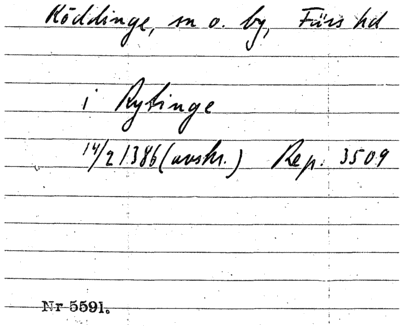 Röddinge, sn o. by, Färs hd
i Rytinge
14/2 1386 (avskr.) Rep. 3509
Nr 5591.